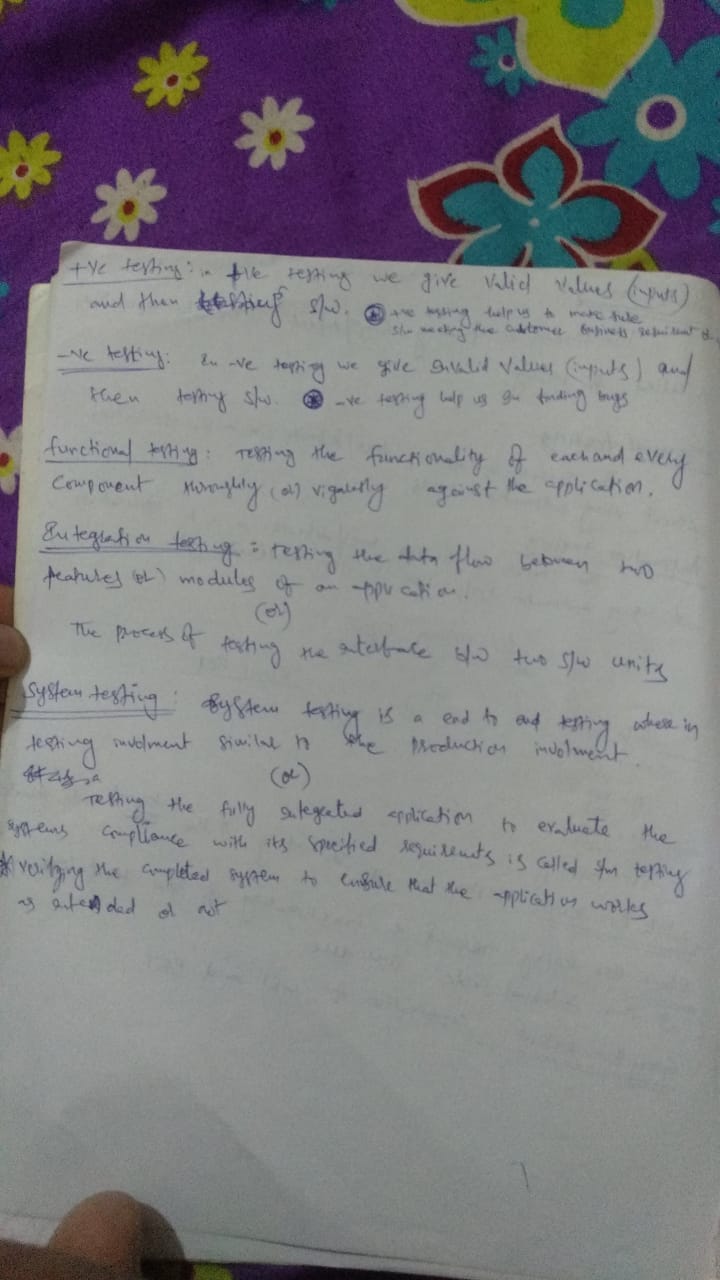 +ve testing: in +ve testing we give valid values (inputs)
and then testing s/w. ⊛ +ve testing help us to make sure
s/w meeting the customer business requirement
-ve testing: In -ve testing we give Invalid values (inputs) and
then testing s/w. ⊛ -ve testing help us In finding bugs
functional testing: Testing the functionality of each and every
Component thoroughly (or) against the application.
Integration testing: testing the data flow between two
features (or) modules of an application.
(or)
The process of testing the interface b/w two s/w units
System testing: System testing is a end to end testing where in
testing involment similar to the production involment.
(or)
Testing the fully integrated application to evaluate the
systems compliance with its specified requirements is called testing
* Verifying the completed system to ensure that the application works
as intended or not